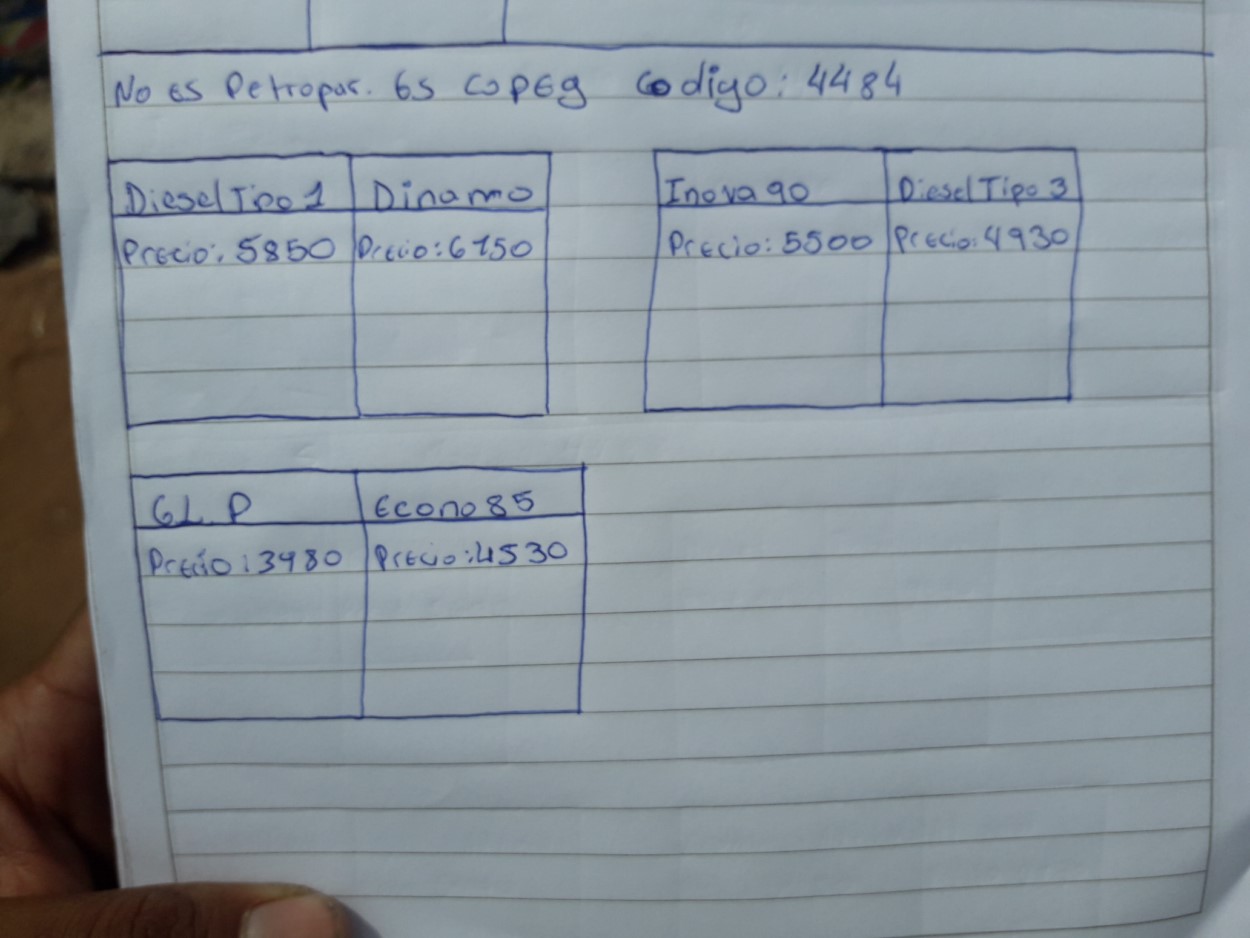 No es Petropar. Es Copeg Codigo: 4484
Diesel Tipo 1 Dinamo Inova 90 Diesel Tipo 3
Precio: 5850 Precio: 6150 Precio: 5500 Precio: 4930
GLP Econo 85
Precio: 3480 Precio: 4530